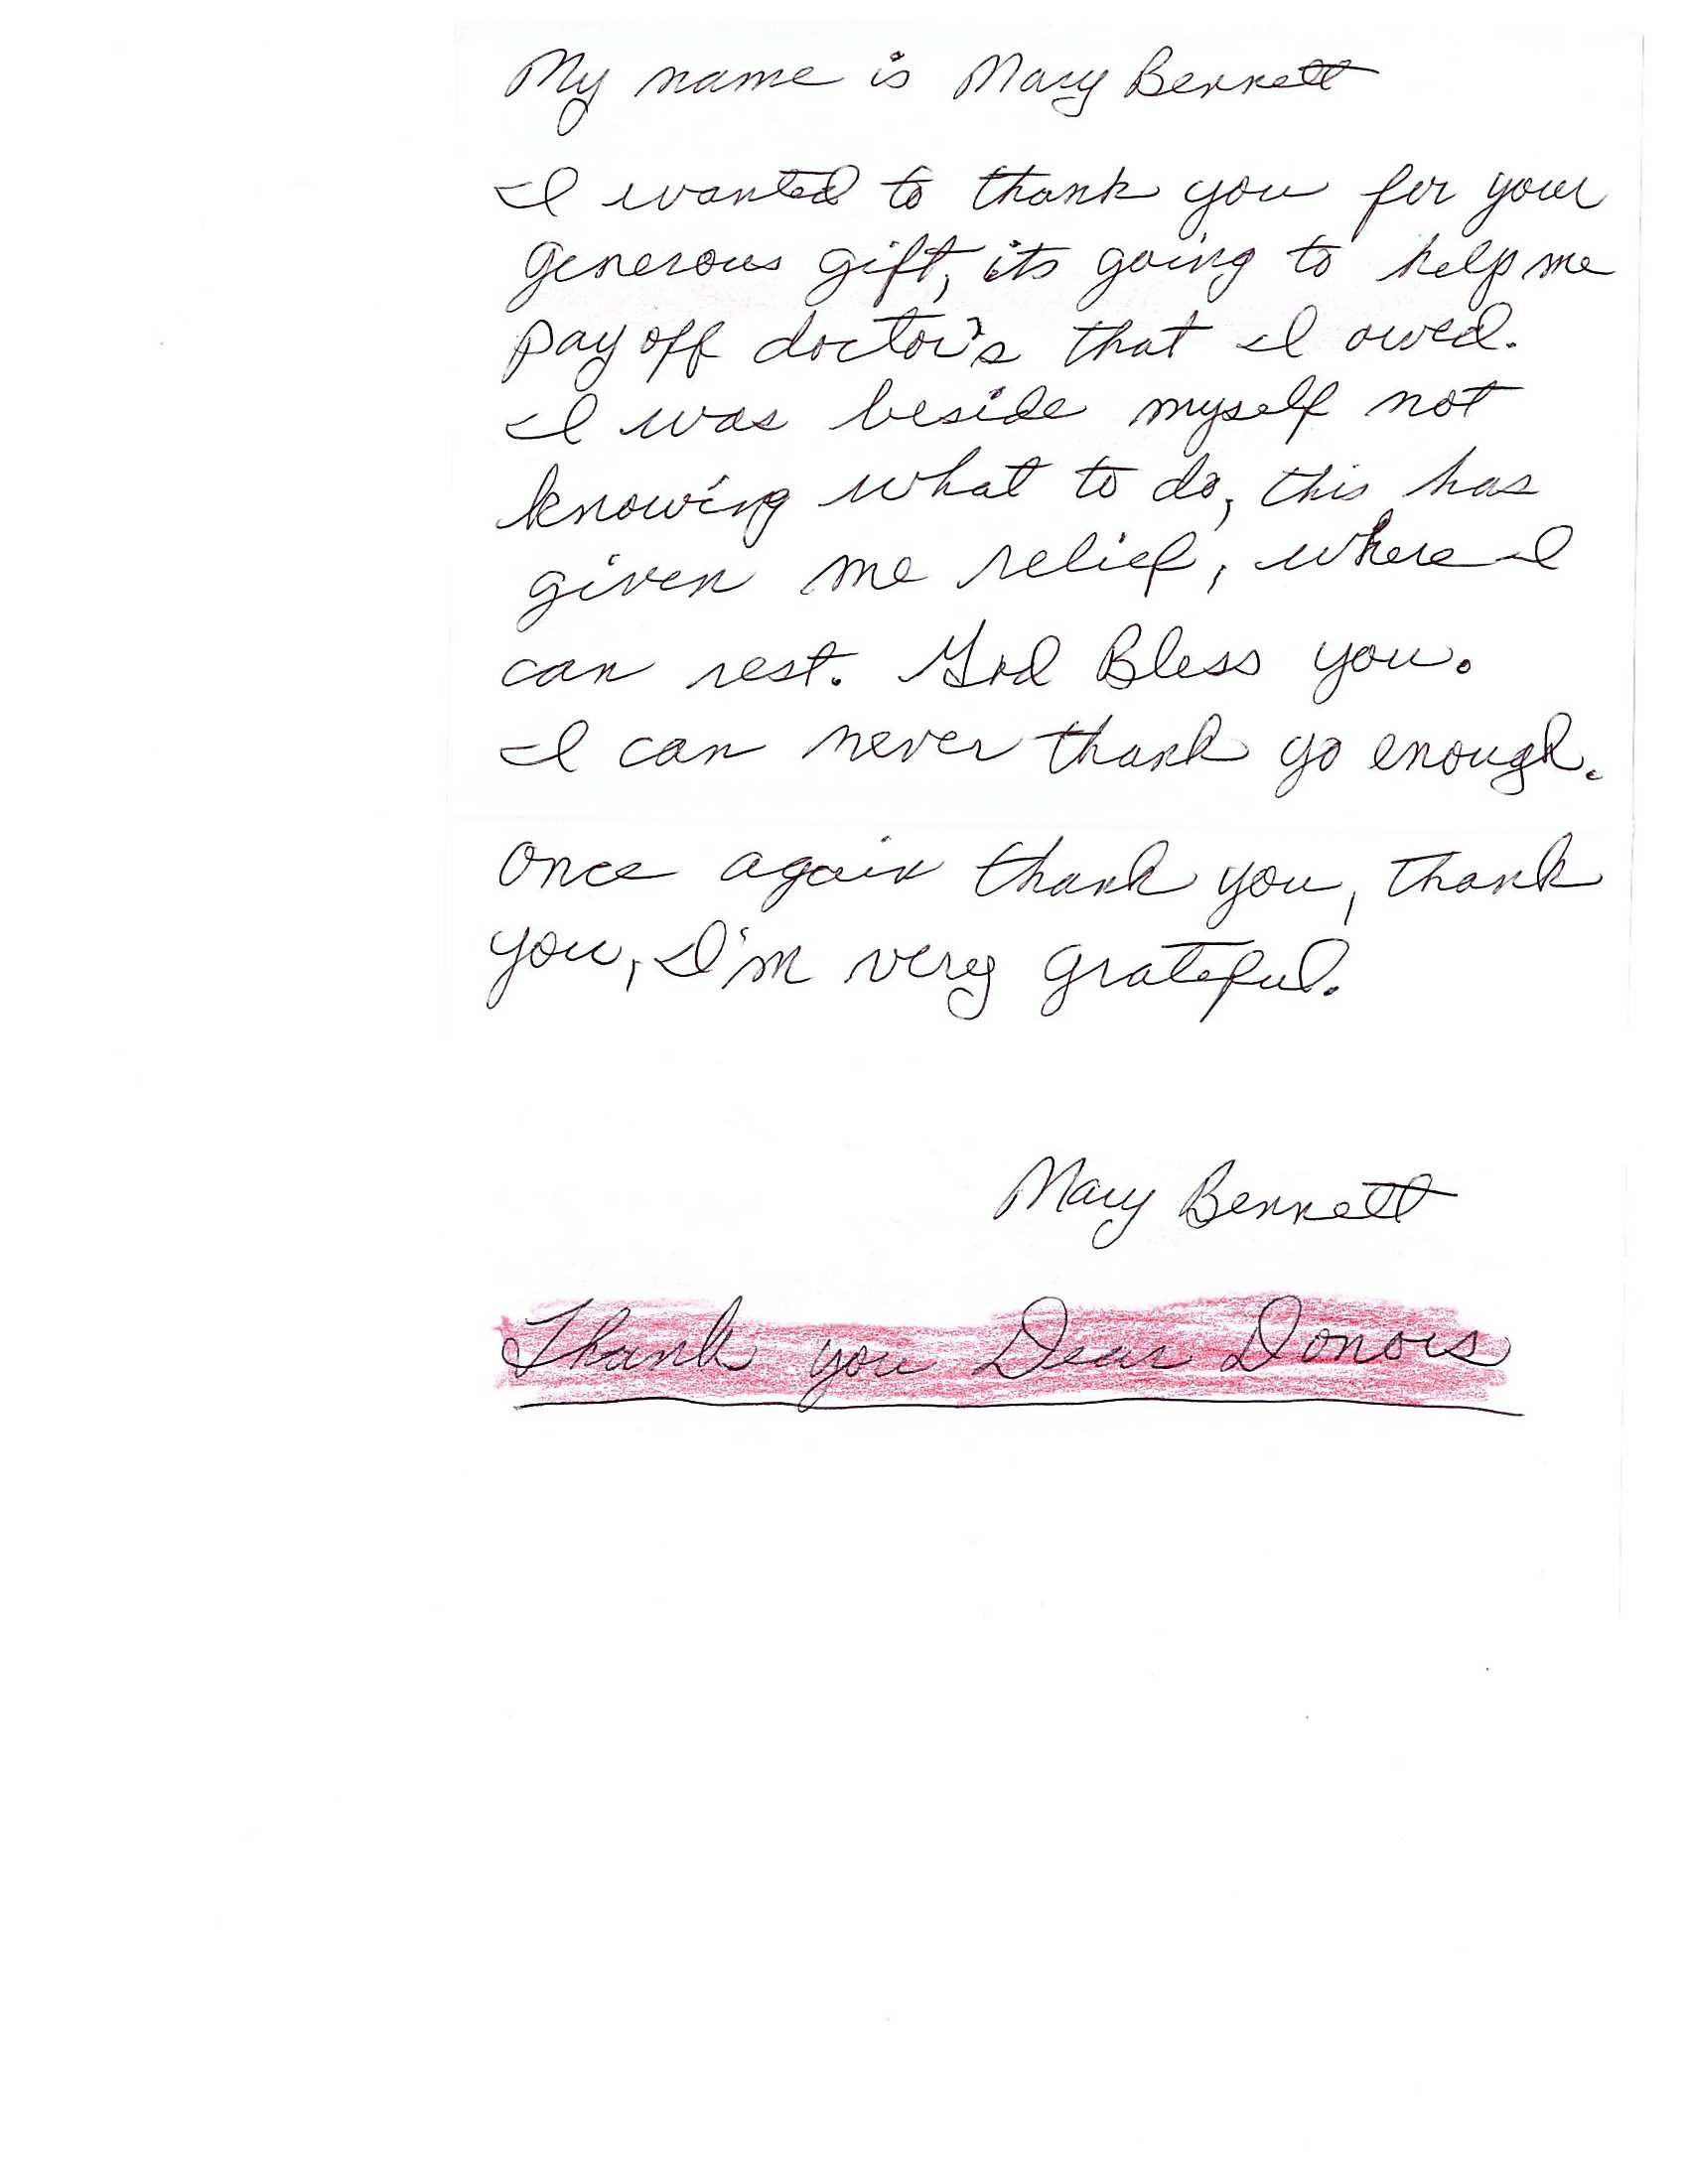 My name is Mary Bennett
I wanted to thank you for your
generous gift, its going to help me
pay off doctor's that I owed.
I was beside myself not
knowing what to do, this has
given me relief, where I
can rest. God Bless you.
I can never thank yo enough.
Once again thank you, thank
you, I'm very grateful.
Mary Bennett
Thank you Dear Donors